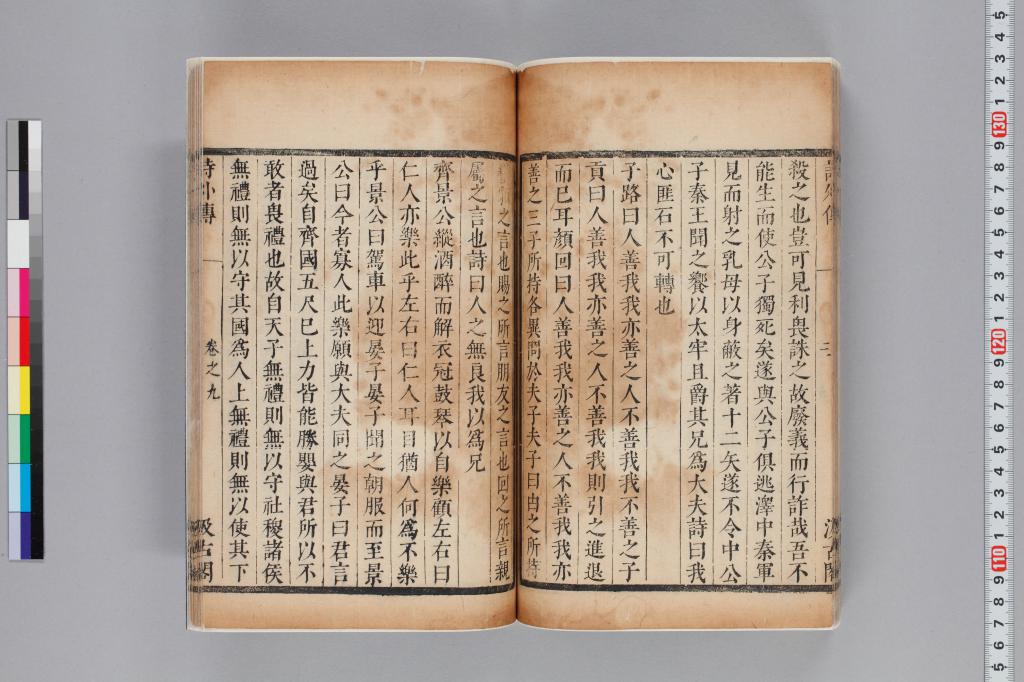 殺之也豈可見利畏誅之故廢義而行詐哉吾不
能生而使公子獨死矣遂與公子俱逃澤中秦軍
見而射之乳母以身蔽之著十二矢遂不令中公
子秦王聞之饗以太牢且爵其兄爲大夫詩曰我
心匪石不可轉也
子路曰人善我我亦善之人不善我我不善之子
貢曰人善我我亦善之人不善我我則引之進退
而已耳顏回曰人善我我亦善之人不善我我亦
善之三子所持各異問於夫子夫子曰由之所持
之言也賜之所言朋友之言也回之所言親
屬之言也詩曰人之無良我以爲兄
齊景公縱酒醉而解衣冠鼓琴以自樂顧左右曰
仁人亦樂此乎左右曰仁人耳目猶人何爲不樂
乎景公曰駕車以迎晏子晏子聞之朝服而至景
公曰今者寡人此樂願與大夫同之晏子曰君言
過矣自齊國五尺已上力皆能勝嬰與君所以不
敢者畏禮也故自天子無禮則無以守社稷諸侯
無禮則無以守其國爲人上無禮則無以使其下
詩外傳 卷之九 汲古閣